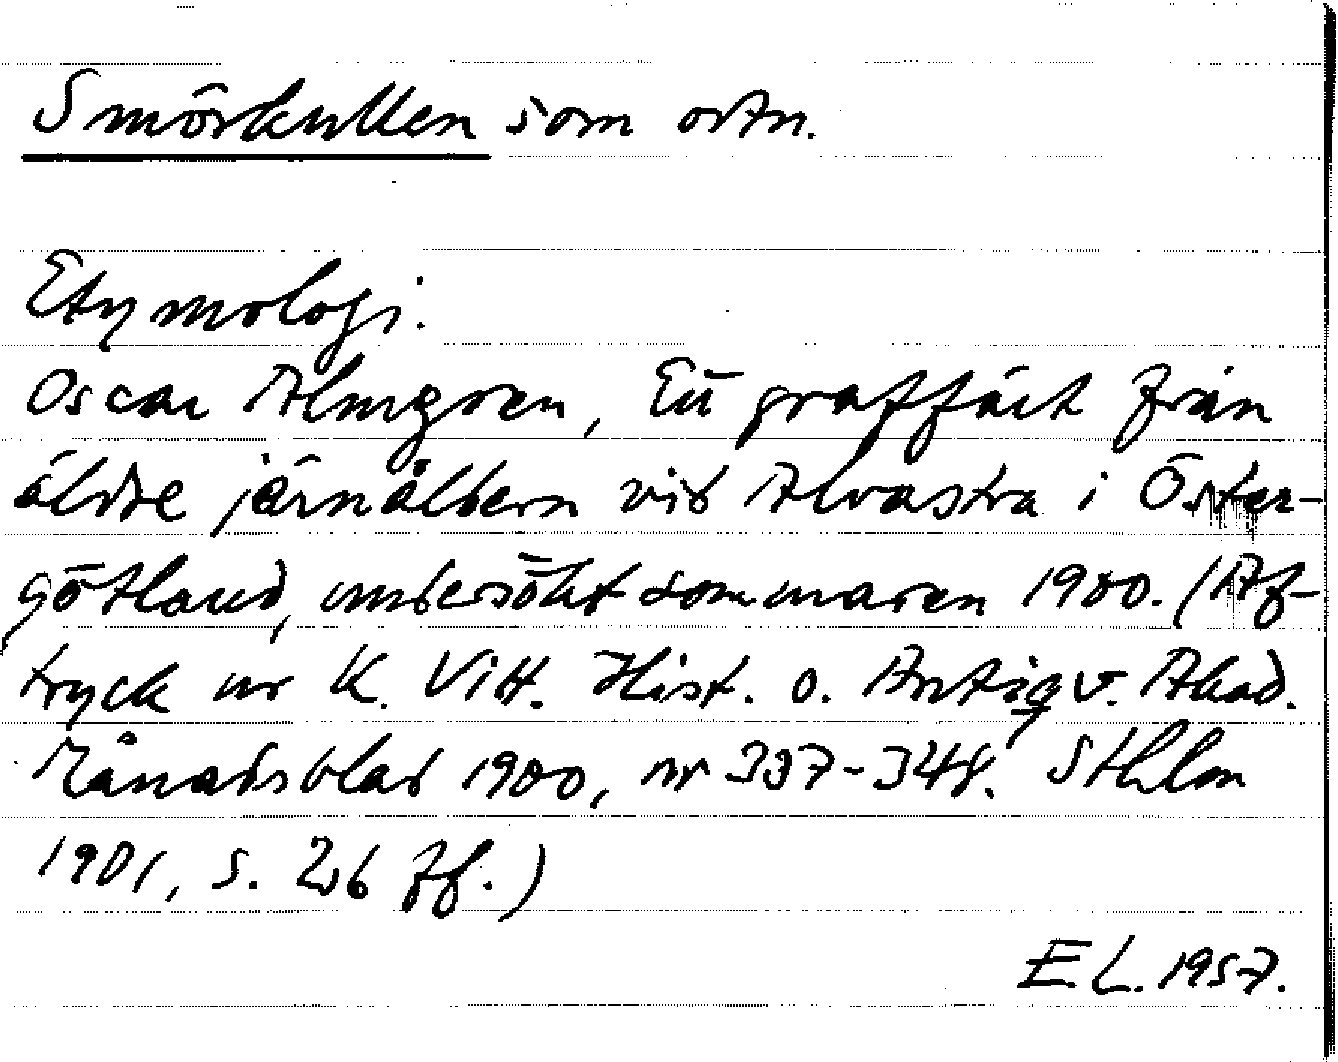 Smörkullen som ortn.
Etymologi.
Oscar Almgren, Ett graffält från
äldre järnåldern vid Alvastra i Öster-
götland, undersökt sommaren 1900. (Af-
tryck ur K. Vitt. Hist. o. Antiqv. Akad.
Månadsblad 1900, nr 337-348. Sthlm
1901, s. 26 ff.)
E.L. 1957.